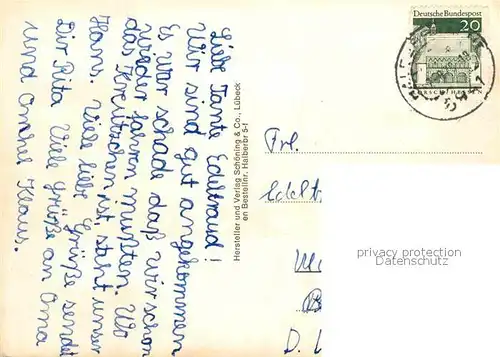 Liebe Tante Edeltraud!
Wir sind gut angekommen
Es war schade daß wir schon
wieder fahren mußten. Wo
das Kreutzchen ist steht unser
Haus. Viele liebe Grüße sendet
Dir Rita Viele Grüße an Oma
und Onkel Klaus.
Hersteller und Verlag Schöning & Co., Lübeck
en Bestellnr. Halbertor 5-f
Deutsche Bundespost
20
LORSCH/HESSEN
Frl.
Edelt
privacy protection
Datenschutz
D.